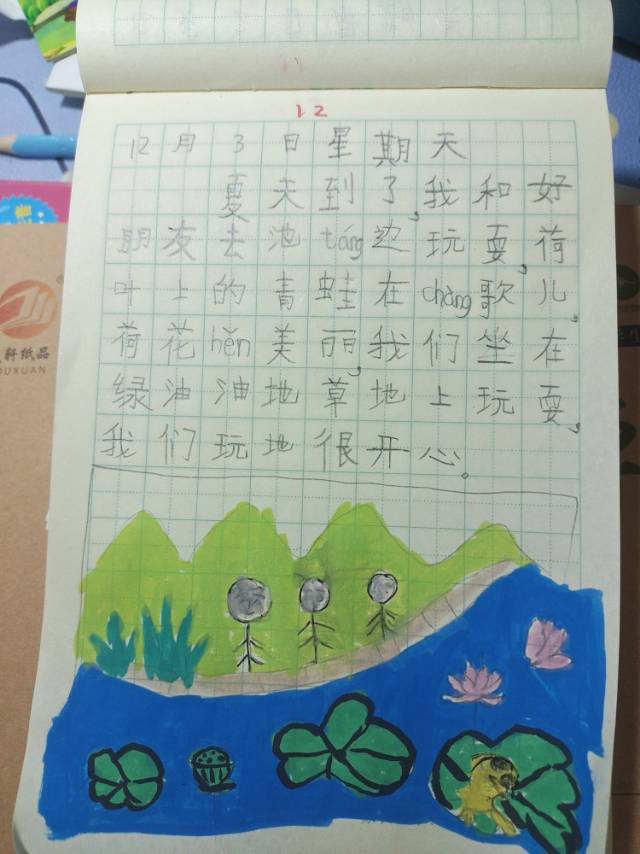 12
12月3日星期天
夏天到了,我和好
朋友去池táng边玩耍,荷
叶上的青蛙在chàng歌儿,
荷花hěn美丽,我们坐在
绿油油地草地上玩耍,
我们玩地很开心。
轩纸品
UXUAN